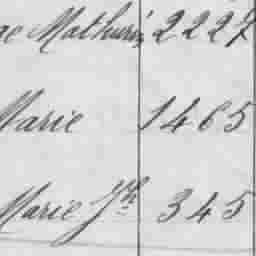 ac Mathurin 2227
Marie 1465
Marie Jh 345